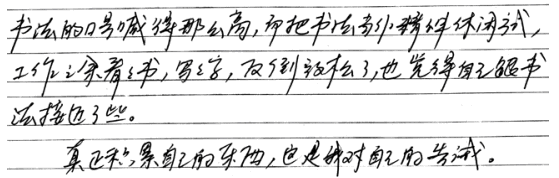 书法的口号喊得那么高,即把书法当小精件休闲式,
工作之余看看书,写写字,反倒放松了,也觉得自己跟书
法接近了些。
真正积累自己的东西,也是我对自己的告诫。